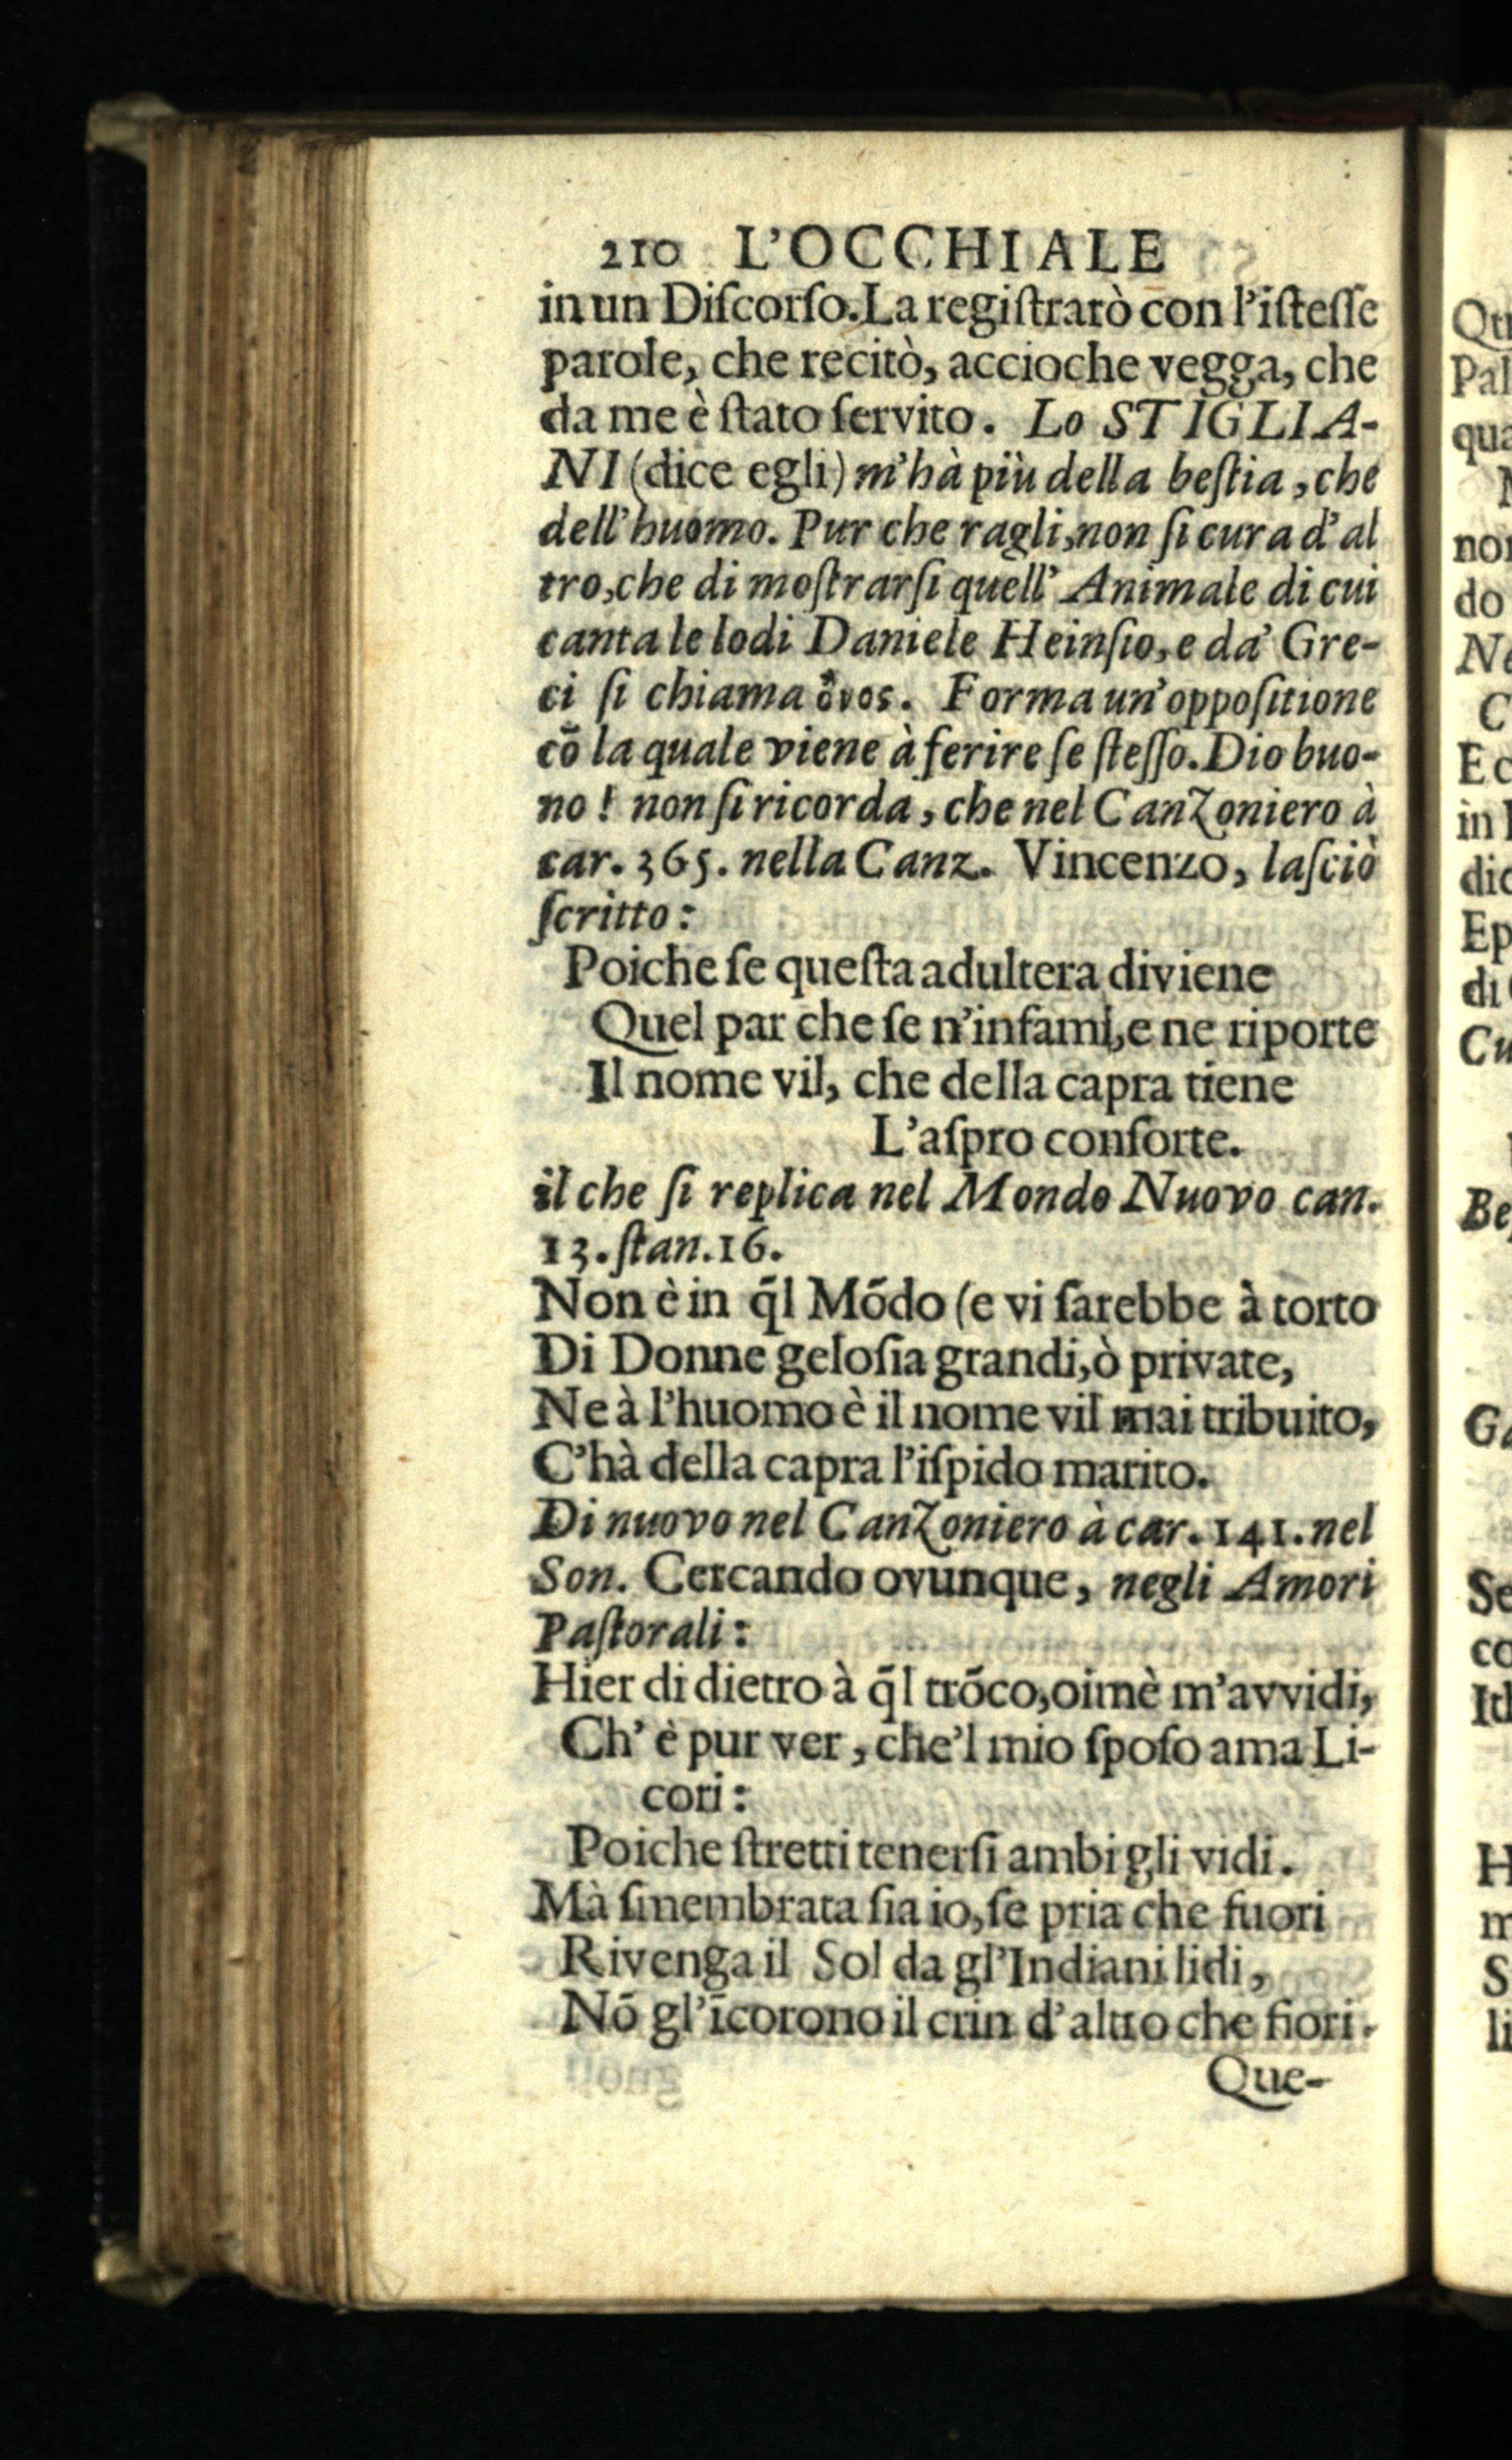 210 L'OCCHIALE
in un Diſcorſo. La regiſtrarò con l'iſteſſe
parole, che recitò, accioche vegga, che
da me è ſtato ſervito. Lo STIGLIA-
NI (dice egli) m'hà più della beſtia, che
dell'huomo. Pur che ragli, non ſi cura d'al
tro, che di moſtrarſi quell' Animale di cui
canta le lodi Daniele Heinſio, e da' Gre-
ci ſi chiama ὄνος. Forma un'oppoſitione
cõ la quale viene à ferire ſe ſteſſo. Dio buo-
no! non ſi ricorda, che nel Canzoniero à
car. 365. nella Canz. Vincenzo, laſciò
ſcritto:
Poiche ſe queſta adultera diviene
Quel par che ſe n'infami, e ne riporte
Il nome vil, che della capra tiene
L'aſpro conſorte.
il che ſi replica nel Mondo Nuovo can.
13. ſtan. 16.
Non è in q̃l Mõdo (e vi ſarebbe à torto
Di Donne geloſia grandi, ò private,
Ne à l'huomo è il nome vil mai tribuito,
C'hà della capra l'iſpido marito.
Di nuovo nel Canzoniero à car. 141. nel
Son. Cercando ovunque, negli Amori
Paſtorali:
Hier di dietro à q̃l trõco, oimè m'avvidi,
Ch' è pur ver, che'l mio ſpoſo ama Li-
cori:
Poiche ſtretti tenerſi ambi gli vidi.
Mà ſmembrata ſia io, ſe pria che fuori
Rivenga il Sol da gl'Indiani lidi,
Nõ gl'ĩcorono il crin d'altro che fiori.
Que-